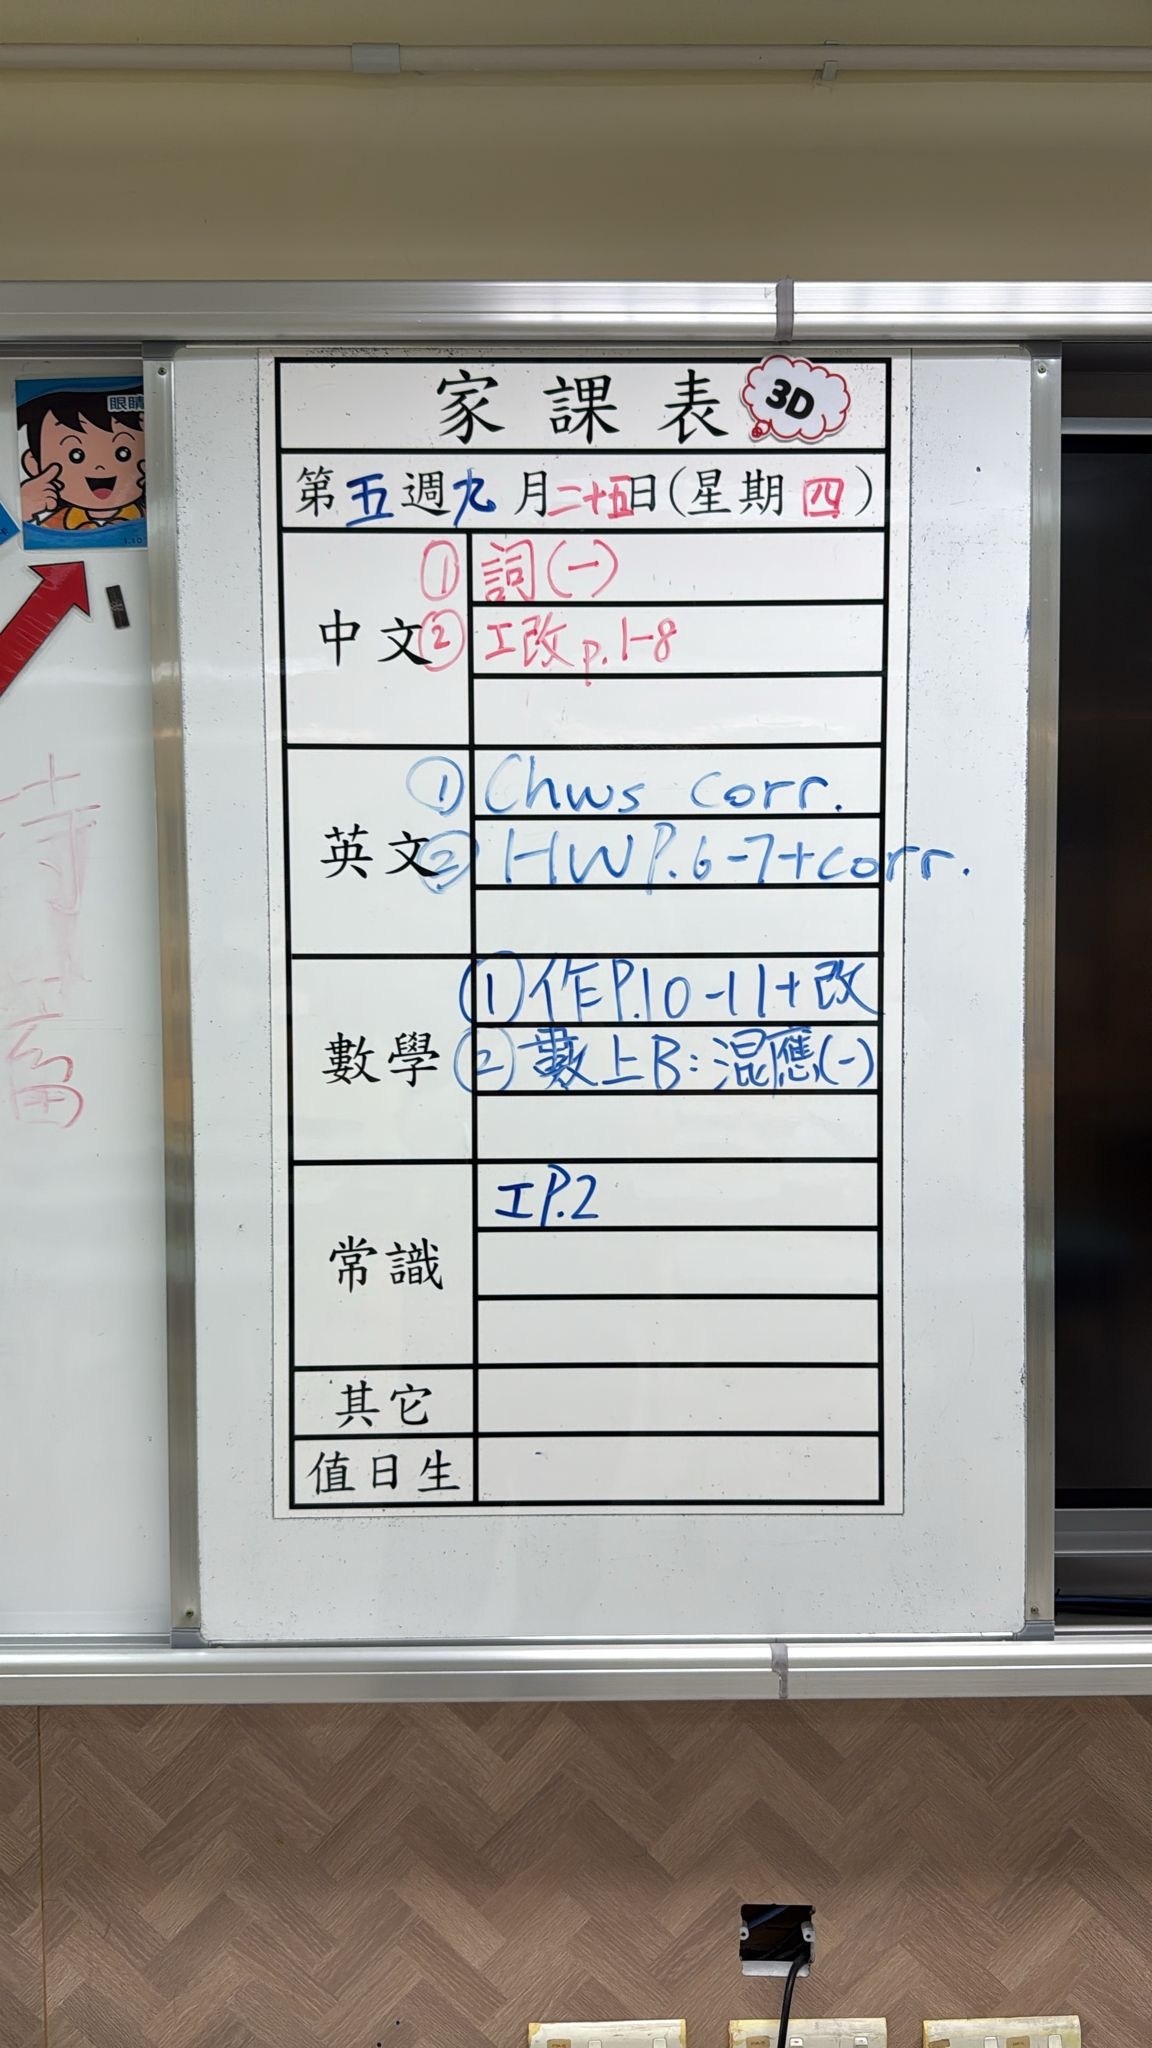 眼睛
家課表 3D
第五週九月二十五日(星期四)
中文
① 詞(一)
② 工改 p.1-8
英文
① Chws corr.
② HW P.6-7+corr.
數學
① 作P.10-11+改
② 數上B:混應(一)
常識
工P.2
其它
值日生